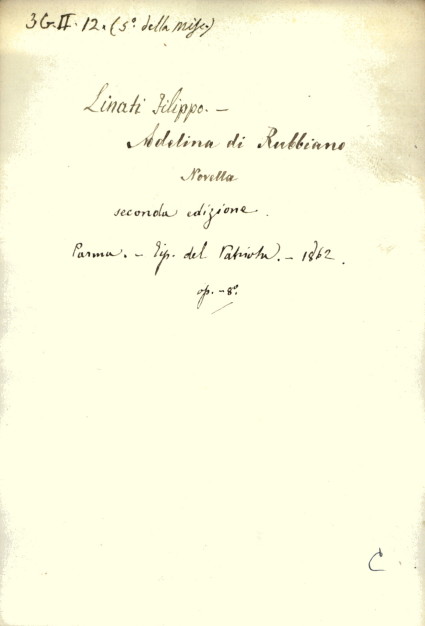 3G.II.12.(5º della misc.)
Linati Filippo. —
Adelina di Rubbiano
Novella
seconda edizione.
Parma. — Tip. del Patriota. — 1862.
op. - 8º.
C.